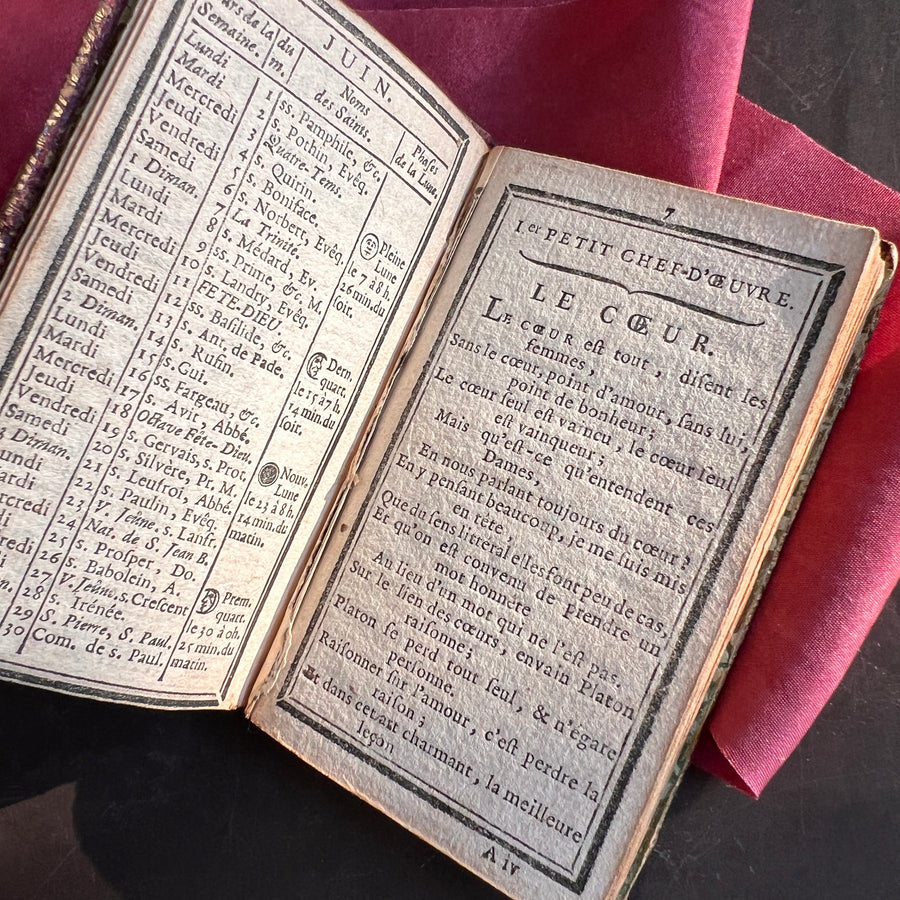 JUIN.
urs de la
Semaine.
du
m.
Noms
des Saints.
Phases
de la Lune.
Lundi 1 ss. Pamphile, &c.
Mardi 2 s. Pothin, Evêq.
Mercredi 3 Quatre-Tems.
Jeudi 4 s. Quirin.
Vendredi 5 s. Boniface.
Samedi 6 s. Norbert, Evêq.
1 Diman. 7 La Trinité.
Lundi 8 s. Médard, Ev.
Mardi 9 ss. Prime, &c. M.
Mercredi 10 s. Landry, Evêq.
Jeudi 11 FETE-DIEU.
Vendredi 12 ss. Basilide, &c.
Samedi 13 s. Ant. de Pade.
2 Diman. 14 s. Rufin.
Lundi 15 s. Gui.
Mardi 16 ss. Fargeau, &c.
Mercredi 17 s. Avit, Abbé.
Jeudi 18 Octave Fête-Dieu.
Vendredi 19 s. Gervais, s. Prot.
Samedi 20 s. Silvére, Pt. M.
Diman. 21 s. Leufroi, Abbé.
undi 22 s. Paulin, Evêq.
ardi 23 V. Jeûne, s. Lanfr.
ercredi 24 Nat. de S. Jean B.
di 25 s. Prosper, Do.
redi 26 s. Babolein, A.
di 27 V. Jeûne. s. Crescent
n. 28 s. Irénée.
29 S. Pierre, S. Paul.
30 Com. de s. Paul.
Pleine
Lune
le 7 à 8h.
26 min. du
soir.
Dern.
quart.
le 15 à 7h.
14 min. du
soir.
Nouv.
Lune
le 23 à
8h.
14 min. du
matin.
Prem.
quart.
le 30 à 0h.
25 min. du
matin.
7
Ier PETIT CHEF-D'ŒUVRE.
LE CŒUR.
LE CŒUR est tout, disent les
femmes,
Sans le cœur, point d'amour, sans lui,
point de bonheur;
Le cœur seul est vaincu, le cœur seul
est vainqueur;
Mais qu'est-ce qu'entendent ces
Dames,
En nous parlant toujours du cœur?
En y pensant beaucoup, je me suis mis
en tête,
Que du sens littéral elles font peu de cas,
Et qu'on est convenu de prendre un
mot honnête
Au lieu d'un mot qui ne l'est pas.
Sur le lien des cœurs, envain Platon
raisonne;
Platon se perd tout seul, & n'égare
personne.
Raisonner sur l'amour, c'est perdre la
raison;
Et dans cet art charmant, la meilleure
leçon
A iv